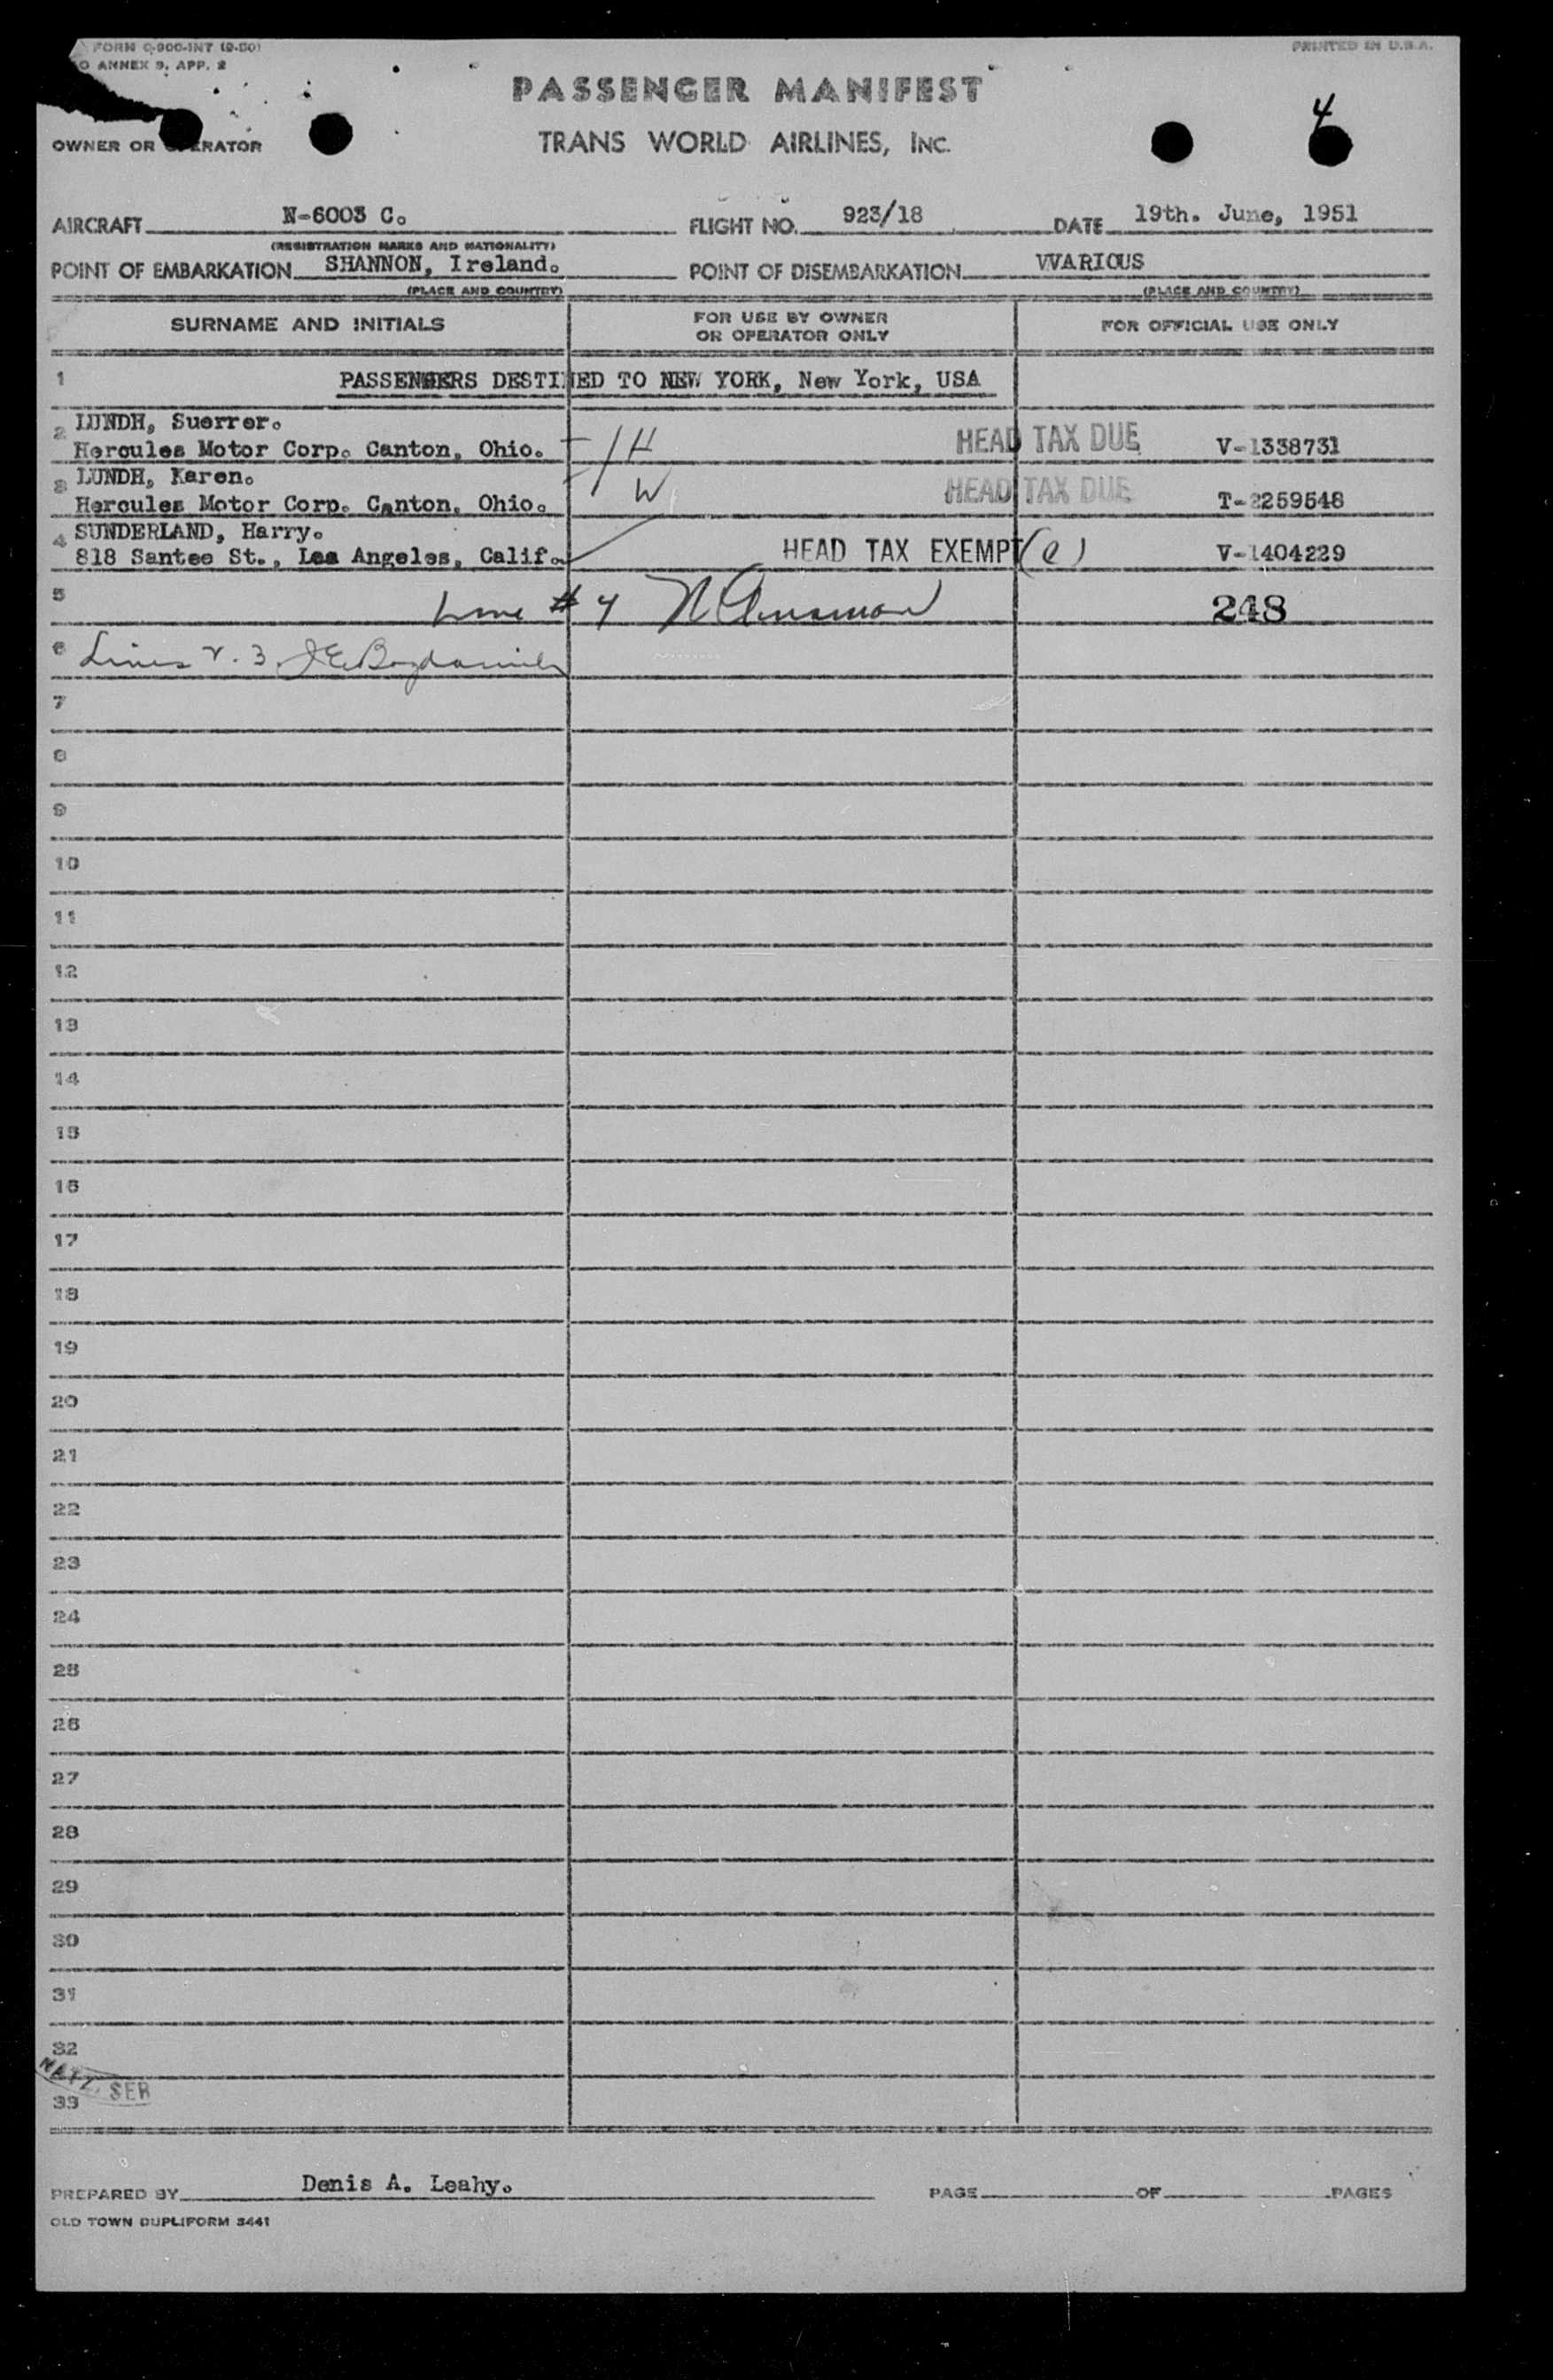 FORM C-900-INT (9-50)
PRINTED IN U.S.A.
O ANNEX 9, APP. 2
PASSENGER MANIFEST
4
OWNER OR OPERATOR
TRANS WORLD AIRLINES, INC.
AIRCRAFT N-6003 C. FLIGHT NO. 923/18 DATE 19th. June, 1951
(REGISTRATION MARKS AND NATIONALITY)
POINT OF EMBARKATION SHANNON, Ireland. POINT OF DISEMBARKATION VVARIOUS
(PLACE AND COUNTRY) (PLACE AND COUNTRY)
SURNAME AND INITIALS FOR USE BY OWNER OR OPERATOR ONLY FOR OFFICIAL USE ONLY
1 PASSENGERS DESTINED TO NEW YORK, New York, USA
2 LUNDH, Suerrer.
Hercules Motor Corp. Canton, Ohio. H HEAD TAX DUE V-1338731
3 LUNDH, Karen.
Hercules Motor Corp. Canton, Ohio. W HEAD TAX DUE T-2259548
4 SUNDERLAND, Harry.
818 Santee St., Los Angeles, Calif. HEAD TAX EXEMPT (e) V-1404229
5 Line # 4 248
6 Lines 2. 3
7
8
9
10
11
12
13
14
15
16
17
18
19
20
21
22
23
24
25
26
27
28
29
30
31
32
NATL. SER
33
PREPARED BY Denis A. Leahy. PAGE OF PAGES
OLD TOWN DUPLIFORM 3441